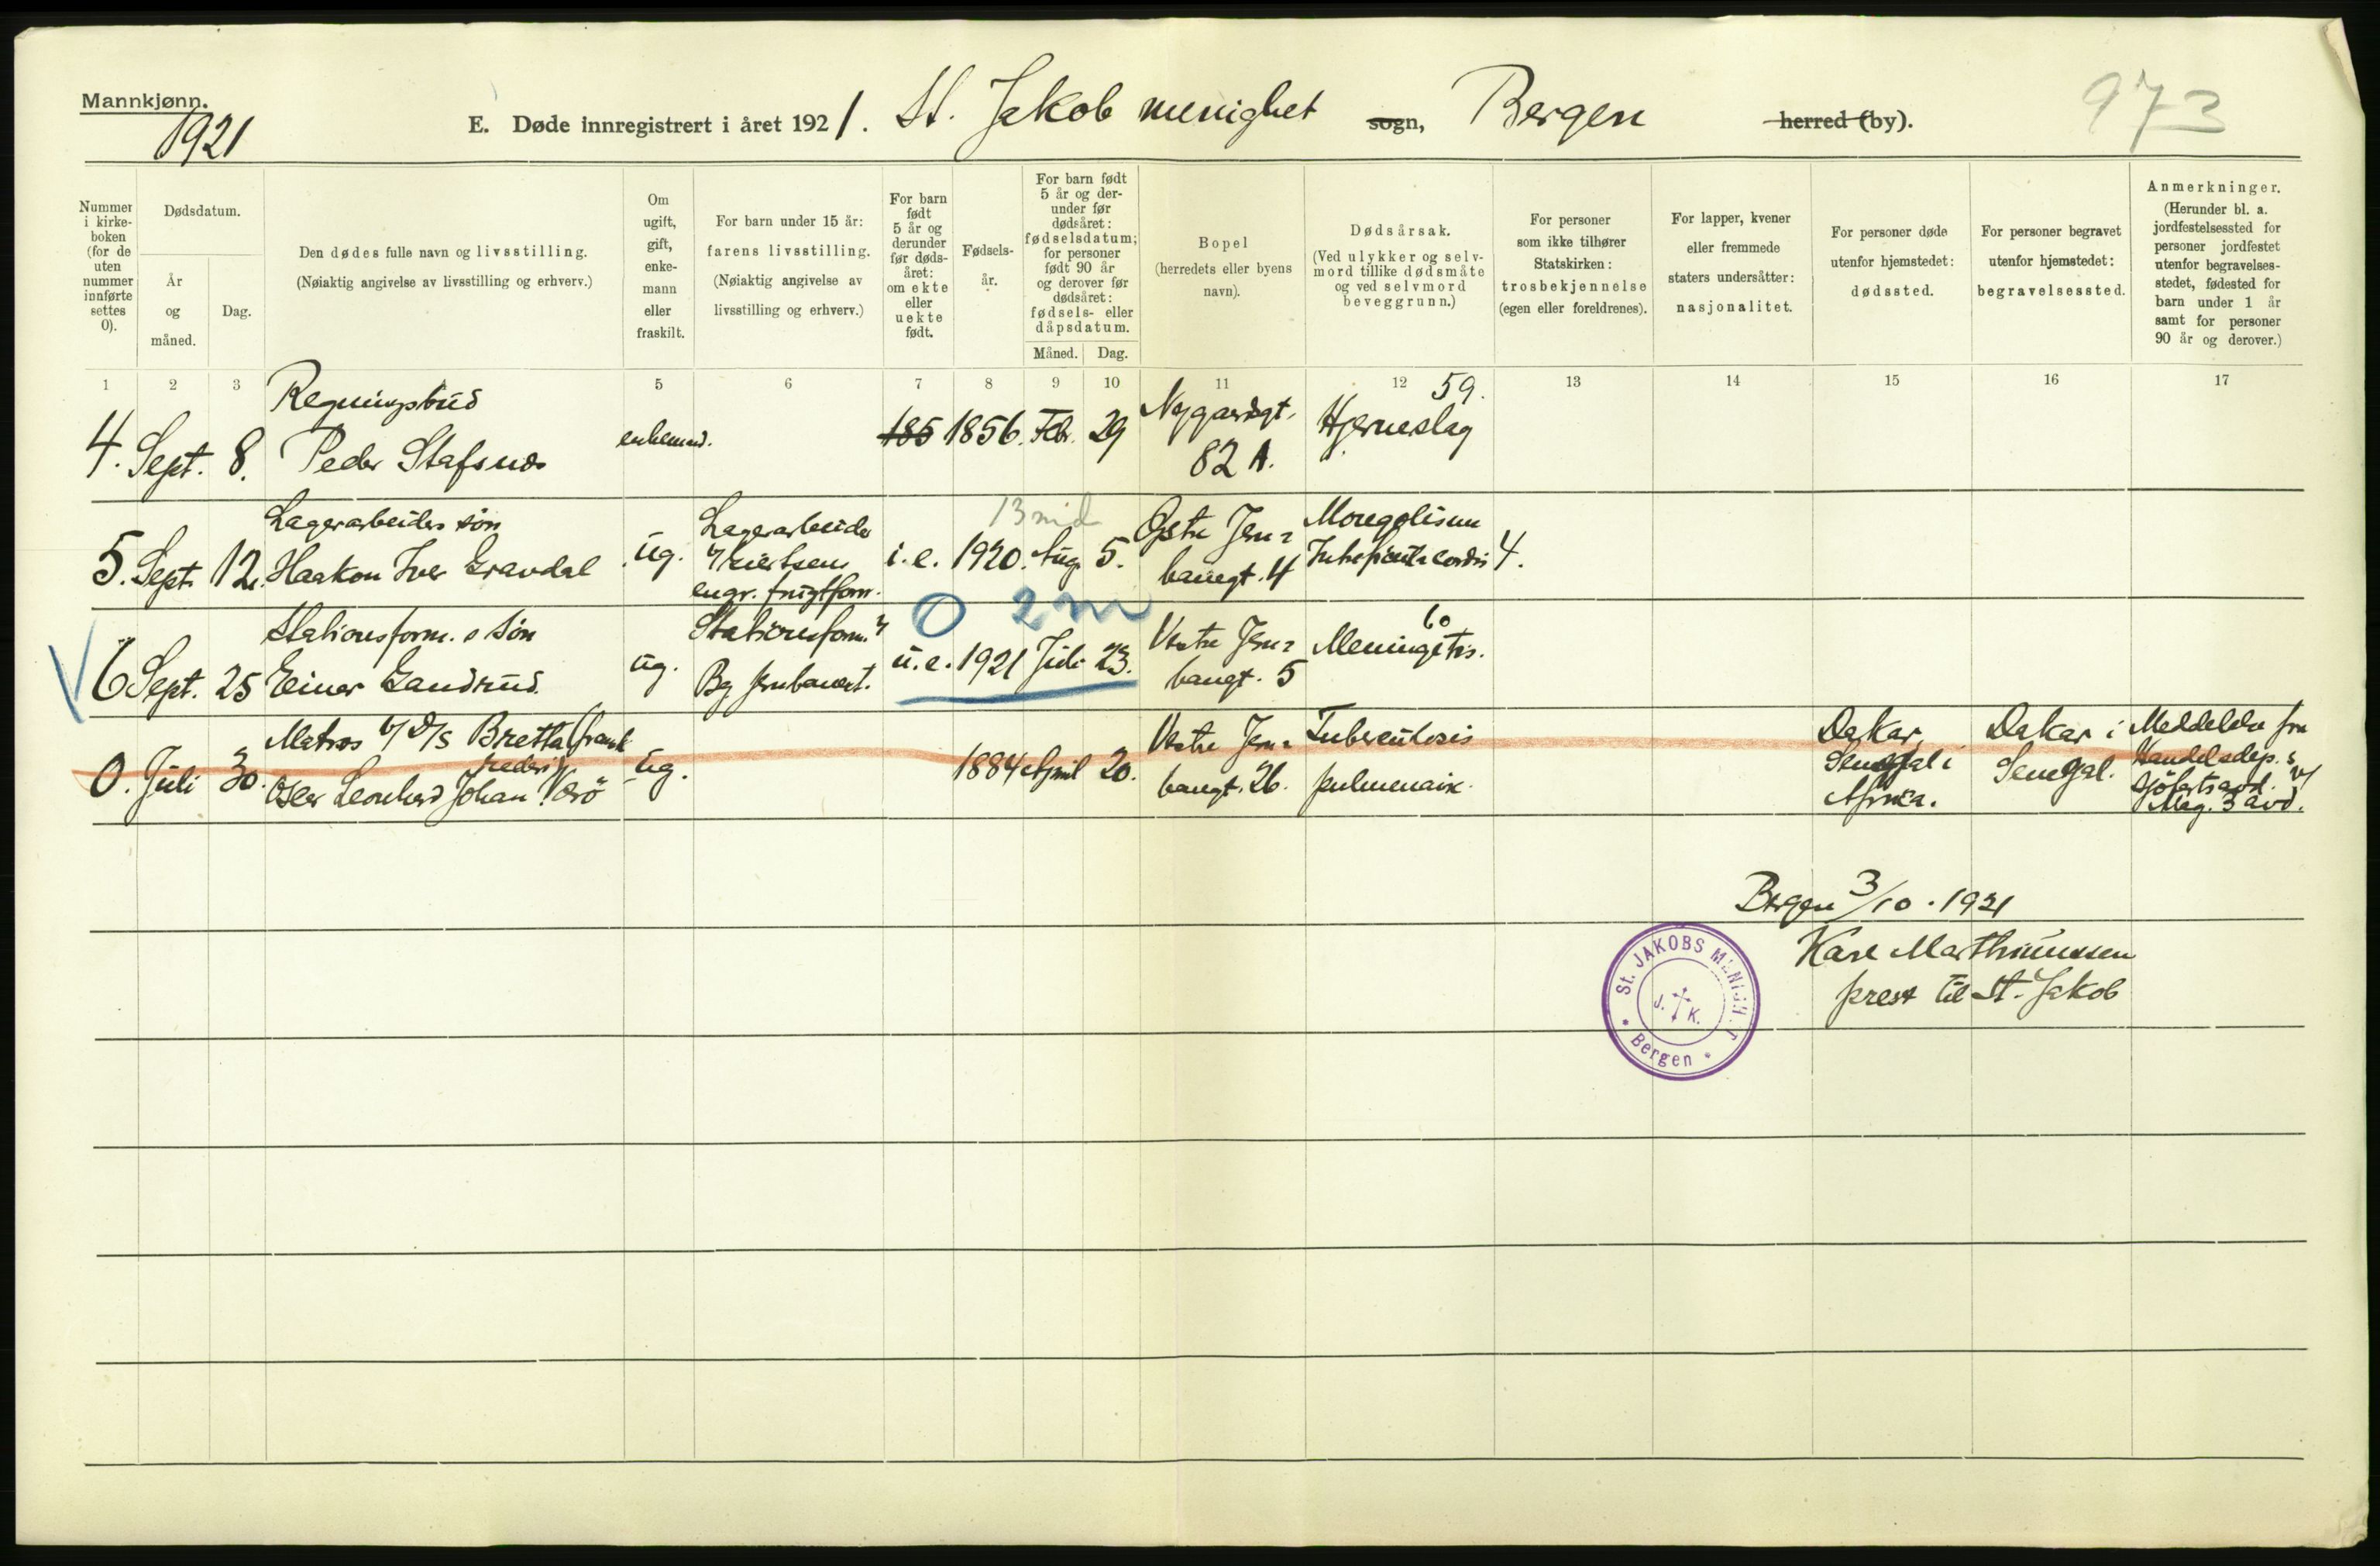 Mannkjønn.
1921
E. Døde innregistrert i året 1921. St. Jakob menighet sogn, Bergen herred (by).
973
Nummer i kirke-boken (for de uten nummer innførte settes 0).
Dødsdatum.
År og måned.
Dag.
Den dødes fulle navn og livsstilling.
(Nøiaktig angivelse av livsstilling og erhverv.)
Om ugift, gift, enke-mann eller fraskilt.
For barn under 15 år:
farens livsstilling.
(Nøiaktig angivelse av livsstilling og erhverv.)
For barn født 5 år og derunder før døds-året: om ekte eller uekte født.
Fødsels-år.
For barn født 5 år og der-under før dødsåret: fødselsdatum; for personer født 90 år og derover før dødsåret: fødsels- eller dåpsdatum.
Måned. Dag.
Bopel
(herredets eller byens navn).
Dødsårsak.
(Ved ulykker og selv-mord tillike dødsmåte og ved selvmord beveggrunn.)
For personer som ikke tilhører Statskirken: trosbekjennelse (egen eller foreldrenes).
For lapper, kvener eller fremmede staters undersåtter: nasjonalitet.
For personer døde utenfor hjemstedet: dødssted.
For personer begravet utenfor hjemstedet: begravelsessted.
Anmerkninger.
(Herunder bl. a. jordfestelsessted for personer jordfestet utenfor begravelses-stedet, fødested for barn under 1 år samt for personer 90 år og derover.)
1 2 3 5 6 7 8 9 10 11 12 13 14 15 16 17
Regningsbud 59.
4. Sept. 8. Peder Stafsnes enkemand. 185 1856. Febr. 29 Nygaardsgt. 82 A. Hjerneslag
Lagerarbeiders søn Lagerarbeider 13 md Østre Jern= Mongolisme
5. Sept. 12. Haakon Iver Gravdal ug. engr. frugtforr. i. e. 1920. Aug. 5. banegt. 4 cordis 4.
O 2 m
Stationsform. s søn Stationsform. v/ Vestre Jern= 60
V 6 Sept. 25 Einar Sandrud. ug. Bg jernbanest. u. e. 1921 Juli 23. banegt. 5 Meningitis.
Matros v/ D/S Bretta (fransk rederi) Vestre Jern= Tuberculosis Dakar, Dakar i Meddelelse fra
0. Juli 30. Oscar Leonhard Johan Værø ug. 1884 April 20. banegt. 26. pulmonair. Senegal i Afrika. Senegal. Handelsdep.s sjøfartsavd. v/ Mag. 3 avd.
Bergen 3/10 . 1921
Karl Marthinussen
prest til St. Jakob
St. JAKOBS MENIGHET
J. K.
Bergen